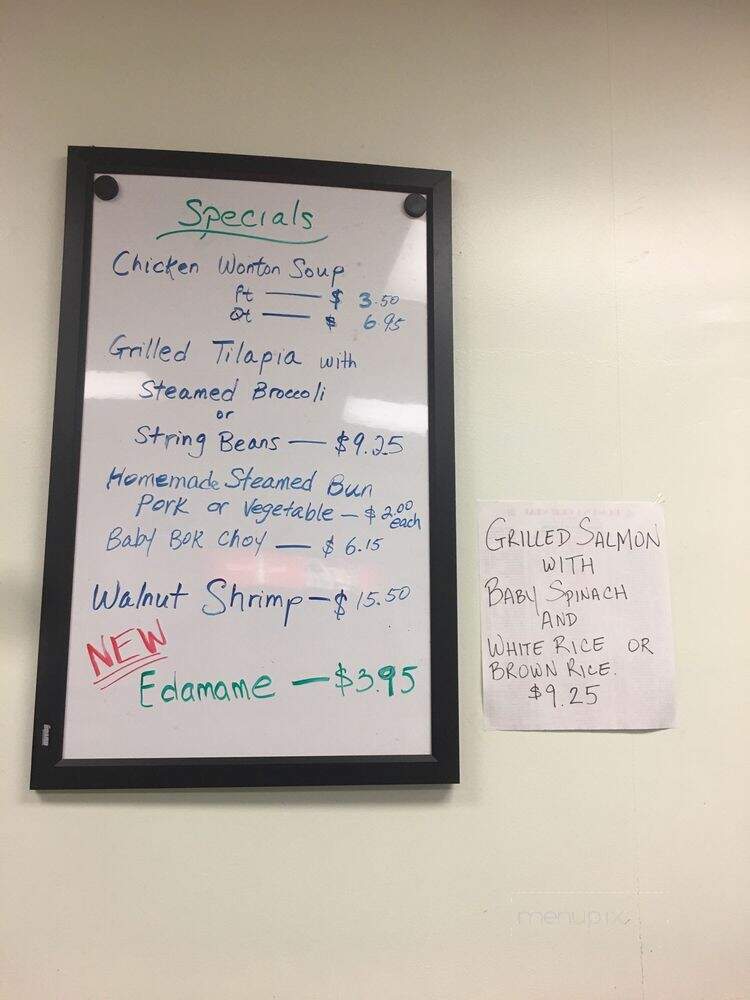 Specials
Chicken Wonton Soup
Pt — $ 3.50
Qt — $ 6.95
Grilled Tilapia with
Steamed Broccoli
or
String Beans — $9.25
Homemade Steamed Bun
Pork or Vegetable — $2.00 each
Baby Bok Choy — $6.15
Walnut Shrimp — $15.50
NEW
Edamame — $3.95
GRILLED SALMON
WITH
BABY SPINACH
AND
WHITE RICE OR
BROWN RICE.
$9.25
menupix